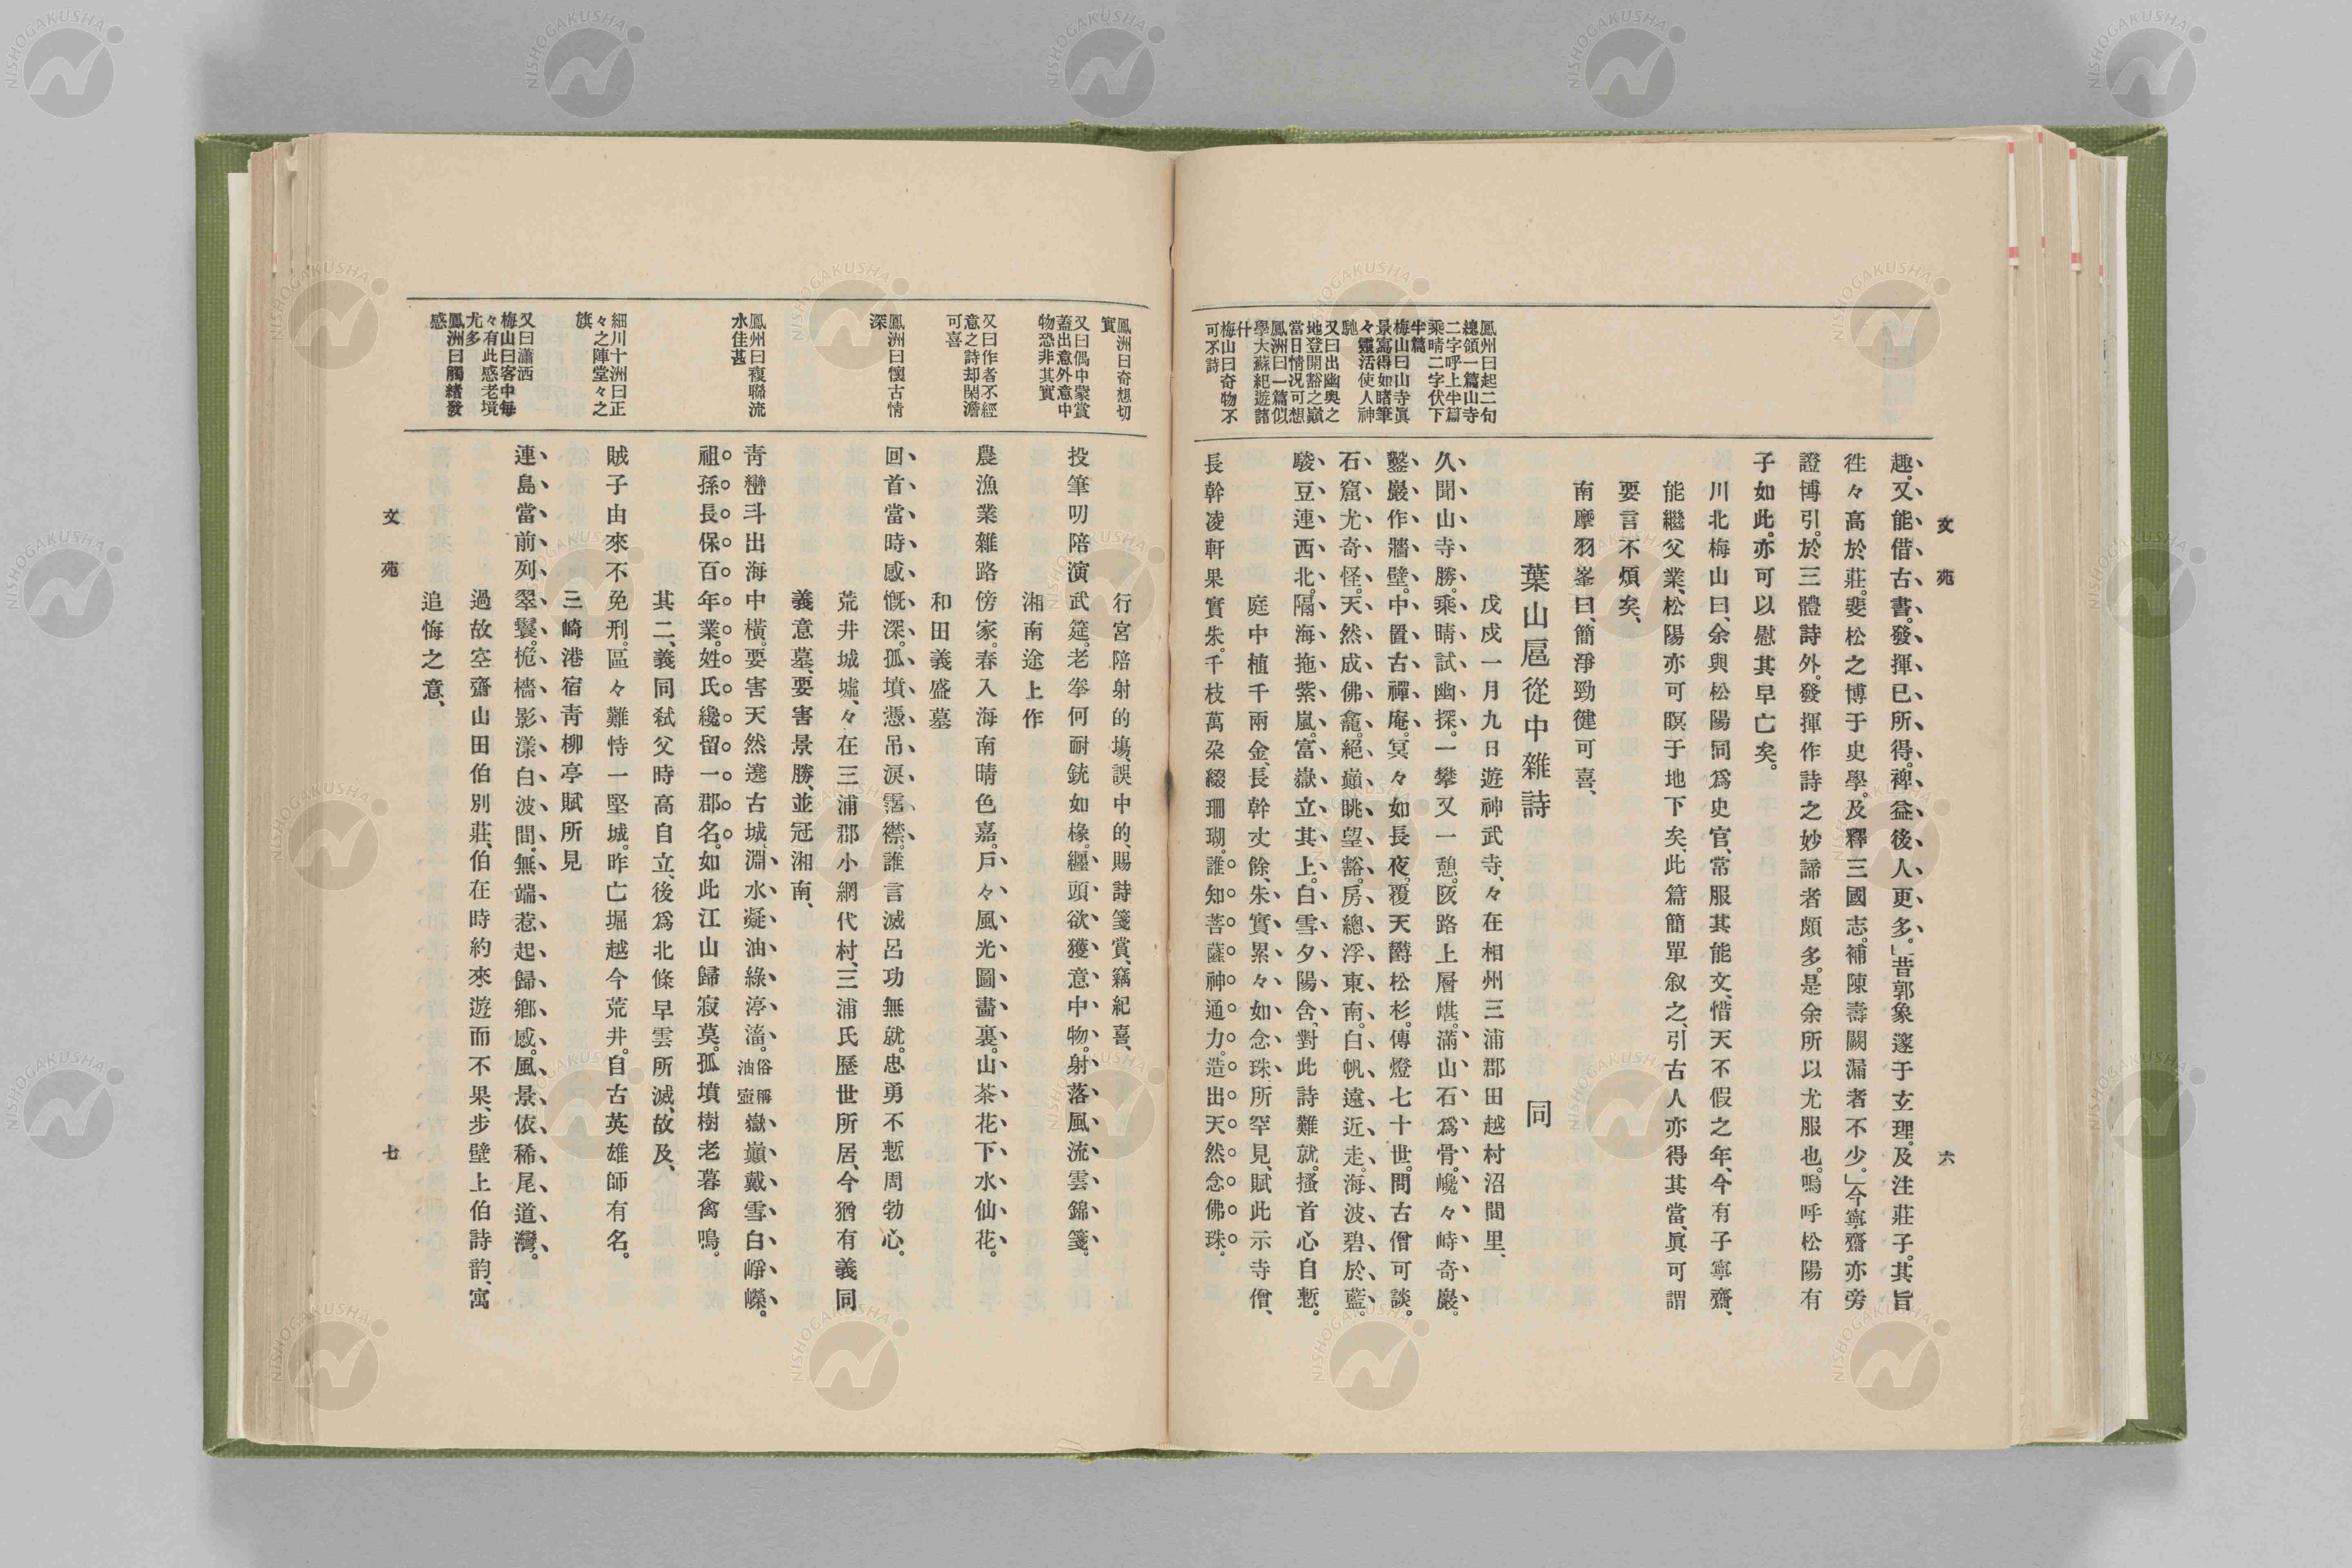 文苑
六
趣、又能借古書。發揮已所得。裨益後人更多。」昔郭象邃于玄理。及注莊子。其旨
徃々高於莊。斐松之博于史學。及釋三國志。補陳壽闕漏者不少。」今寧齋亦旁
證博引。於三體詩外。發揮作詩之妙諦者頗多。是余所以尤服也。嗚呼松陽有
子如此。亦可以慰其早亡矣。
川北梅山曰、余與松陽同爲史官、常服其能文、惜天不假之年、今有子寧齋、
能繼父業、松陽亦可瞑于地下矣、此篇簡單叙之、引古人亦得其當、眞可謂
要言不煩矣、
南摩羽峯曰、簡淨勁健可喜、
葉山扈從中雜詩 同
戊戌一月九日遊神武寺、々在相州三浦郡田越村沼間里、
久聞山寺勝。乘晴試幽探。一攀又一憩。阪路上層嵁。滿山石爲骨。巉々峙奇巖。
鑿巖作牆壁。中置古禪庵。冥々如長夜。覆天欝松杉。傳燈七十世。問古僧可談。
石窟尤奇怪。天然成佛龕。絕巓眺望豁。房總浮東南。白帆遠近走。海波碧於藍。
駿豆連西北。隔海拖紫嵐。富嶽立其上。白雪夕陽含、對此詩難就。搔首心自慙。
庭中植千兩金、長幹丈餘、朱實累々如念珠、所罕見、賦此示寺僧、
長幹凌軒果實朱。千枝萬朶綴珊瑚。誰知菩薩神通力。造出天然念佛珠。
鳳州曰起二句
總領一篇山寺
二字呼上半篇
乘晴二字伏下
半篇
梅山曰山寺眞
景寫得如睹筆
々靈活使人神
馳
又曰出幽奧之
地登開豁之巓
當日情况可想
鳳洲曰一篇似
學大蘇紀遊諸
什
梅山曰奇物不
可不詩
行宮陪射的塲、誤中的、賜詩箋賞、竊紀喜、
投筆叨陪演武筵。老拳何耐銃如椽。纒頭欲獲意中物。射落風流雲錦箋。
湘南途上作
農漁業雜路傍家。春入海南晴色嘉。戶々風光圖畵裏。山茶花下水仙花。
和田義盛墓
回首當時感慨深。孤墳憑吊淚霑襟。誰言滅呂功無就。忠勇不慙周勃心。
荒井城墟、々在三浦郡小網代村、三浦氏歷世所居、今猶有義同
義意墓、要害景勝、並冠湘南、
靑巒斗出海中橫。要害天然遶古城。淵水凝油綠渟瀯。俗稱油壺嶽巓戴雪白崢嶸。
祖孫長保百年業。姓氏纔留一郡名。如此江山歸寂莫。孤墳樹老暮禽鳴。
其二、義同弒父時高自立、後爲北條早雲所滅、故及、
賊子由來不免刑。區々難恃一堅城。昨亡堀越今荒井。自古英雄師有名。
三崎港宿靑柳亭賦所見
連島當前列翠鬟。桅檣影漾白波間。無端惹起歸鄉感。風景依稀尾道灣。
過故空齋山田伯別莊、伯在時約來遊而不果、步壁上伯詩韵、寓
追悔之意、
鳳洲曰奇想切
實
又曰偶中蒙賞
蓋出意外意中
物恐非其實
又曰作者不經
意之詩却閑澹
可喜
鳳洲曰懷古情
深
鳳州曰複聯流
水佳甚
細川十洲曰正
々之陣堂々之
旗
又曰瀟洒
梅山曰客中每
々有此感老境
尤多
鳳洲曰觸緖發
感
文苑
七
NISHOGAKUSHA